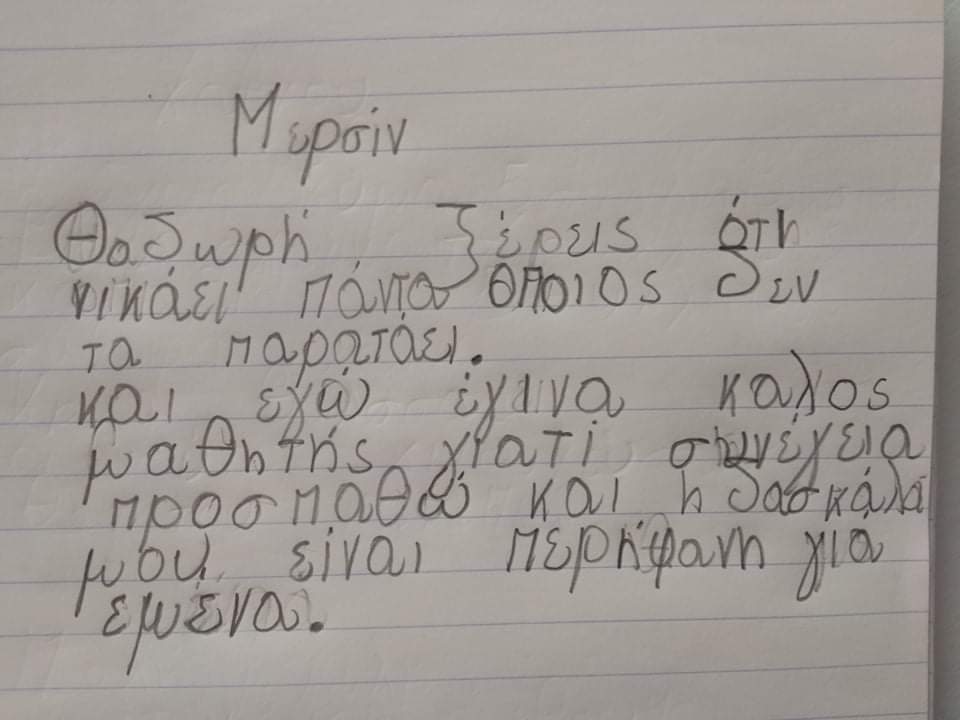 Μερσίν
Θοδωρή ξέρεις ότη
νικάει πάντα όποιος δεν
τα παρατάει.
και εγώ έγινα καλος
μαθητής γιατί συνέγεια
προσπαθώ και η δασκάλα
μου είναι περήφανη για
εμένα.